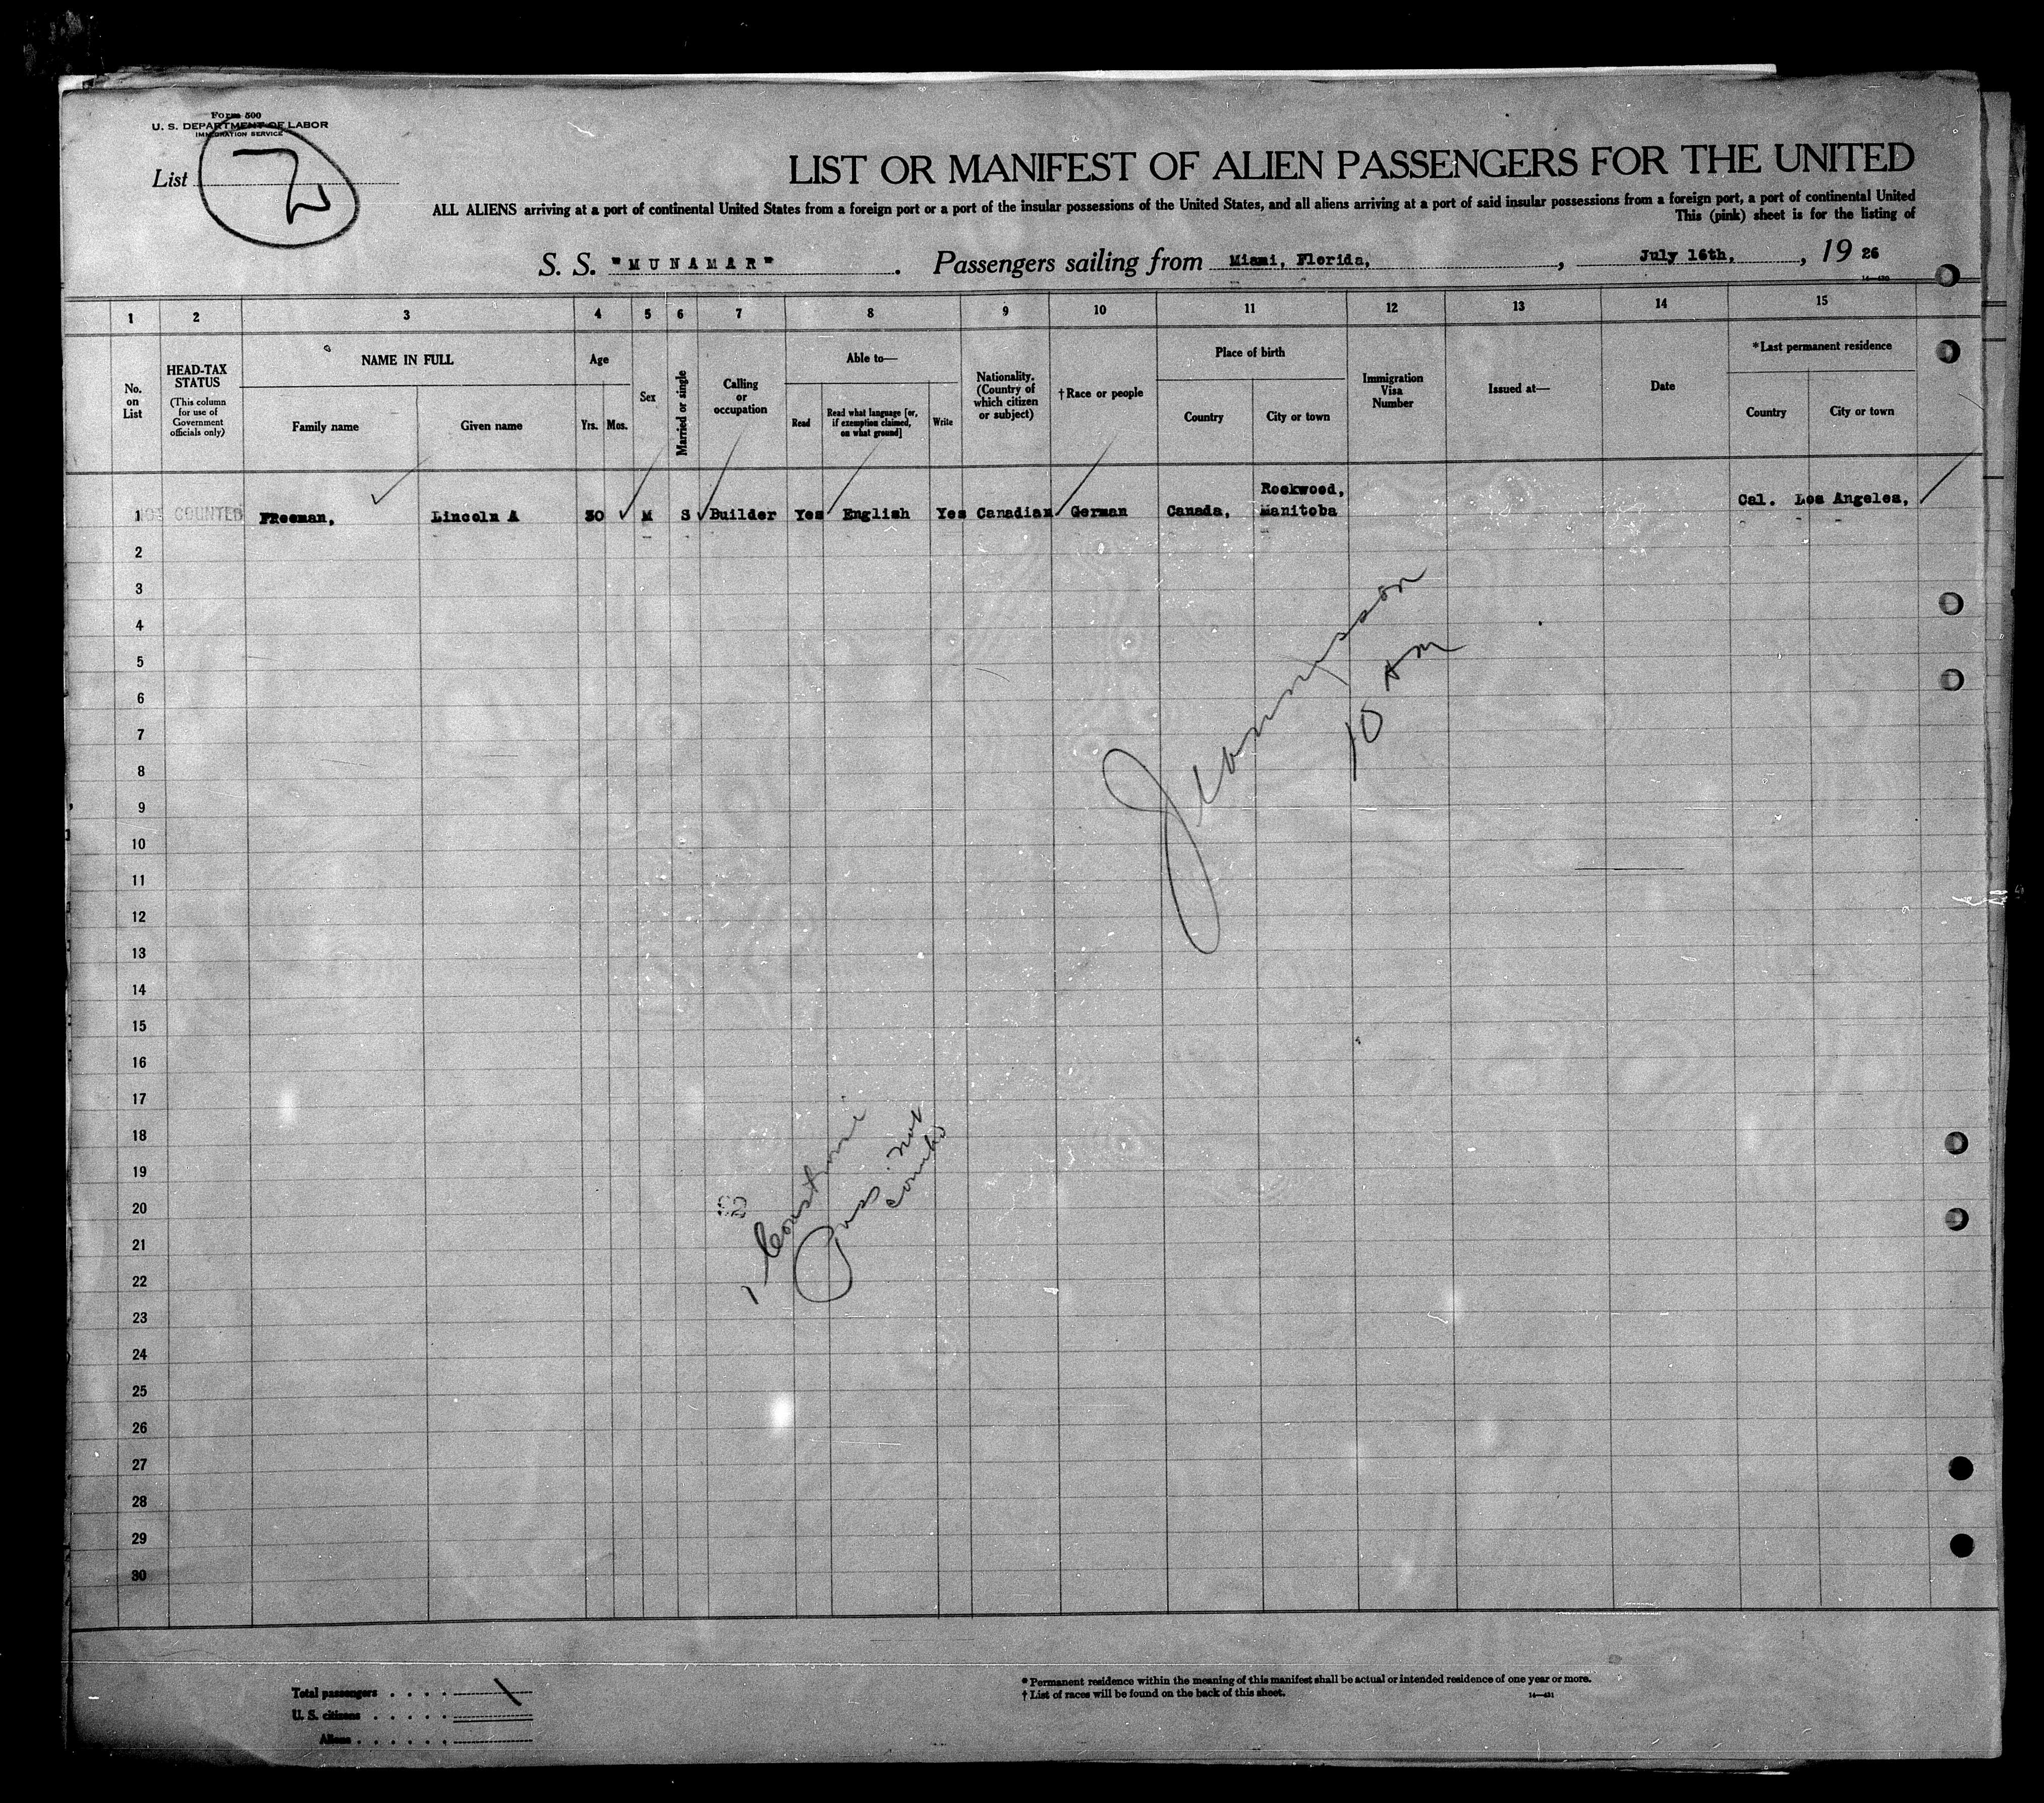 Form 500
U. S. DEPARTMENT OF LABOR
IMMIGRATION SERVICE
List
LIST OR MANIFEST OF ALIEN PASSENGERS FOR THE UNITED
ALL ALIENS arriving at a port of continental United States from a foreign port or a port of the insular possessions of the United States, and all aliens arriving at a port of said insular possessions from a foreign port, a port of continental United
This (pink) sheet is for the listing of
S. S. "MUNAMAR". Passengers sailing from Miami, Florida, , July 16th, , 19 26
14—430
1 2 3 4 5 6 7 8 9 10 11 12 13 14 15
No. on List
HEAD-TAX STATUS
(This column for use of Government officials only)
NAME IN FULL
Family name
Given name
Age
Yrs. Mos.
Sex
Married or single
Calling or occupation
Able to—
Read
Read what language [or, if exemption claimed, on what ground]
Write
Nationality. (Country of which citizen or subject)
†Race or people
Place of birth
Country
City or town
Immigration Visa Number
Issued at—
Date
*Last permanent residence
Country
City or town
1 NOT COUNTED FReeman, Lincoln A 30 M S Builder Yes English Yes Canadian German Canada, Rockwood, Manitoba Cal. Los Angeles,
2
3
4
5
6
7
8
9
10
11
12
13
14
15
16
17
18
19
20
21
22
23
24
25
26
27
28
29
30
10 AM
1
Pass. not
Total passengers . . . .
U. S. citizens . . . . .
Aliens . . . . . .
* Permanent residence within the meaning of this manifest shall be actual or intended residence of one year or more.
† List of races will be found on the back of this sheet.
14—431